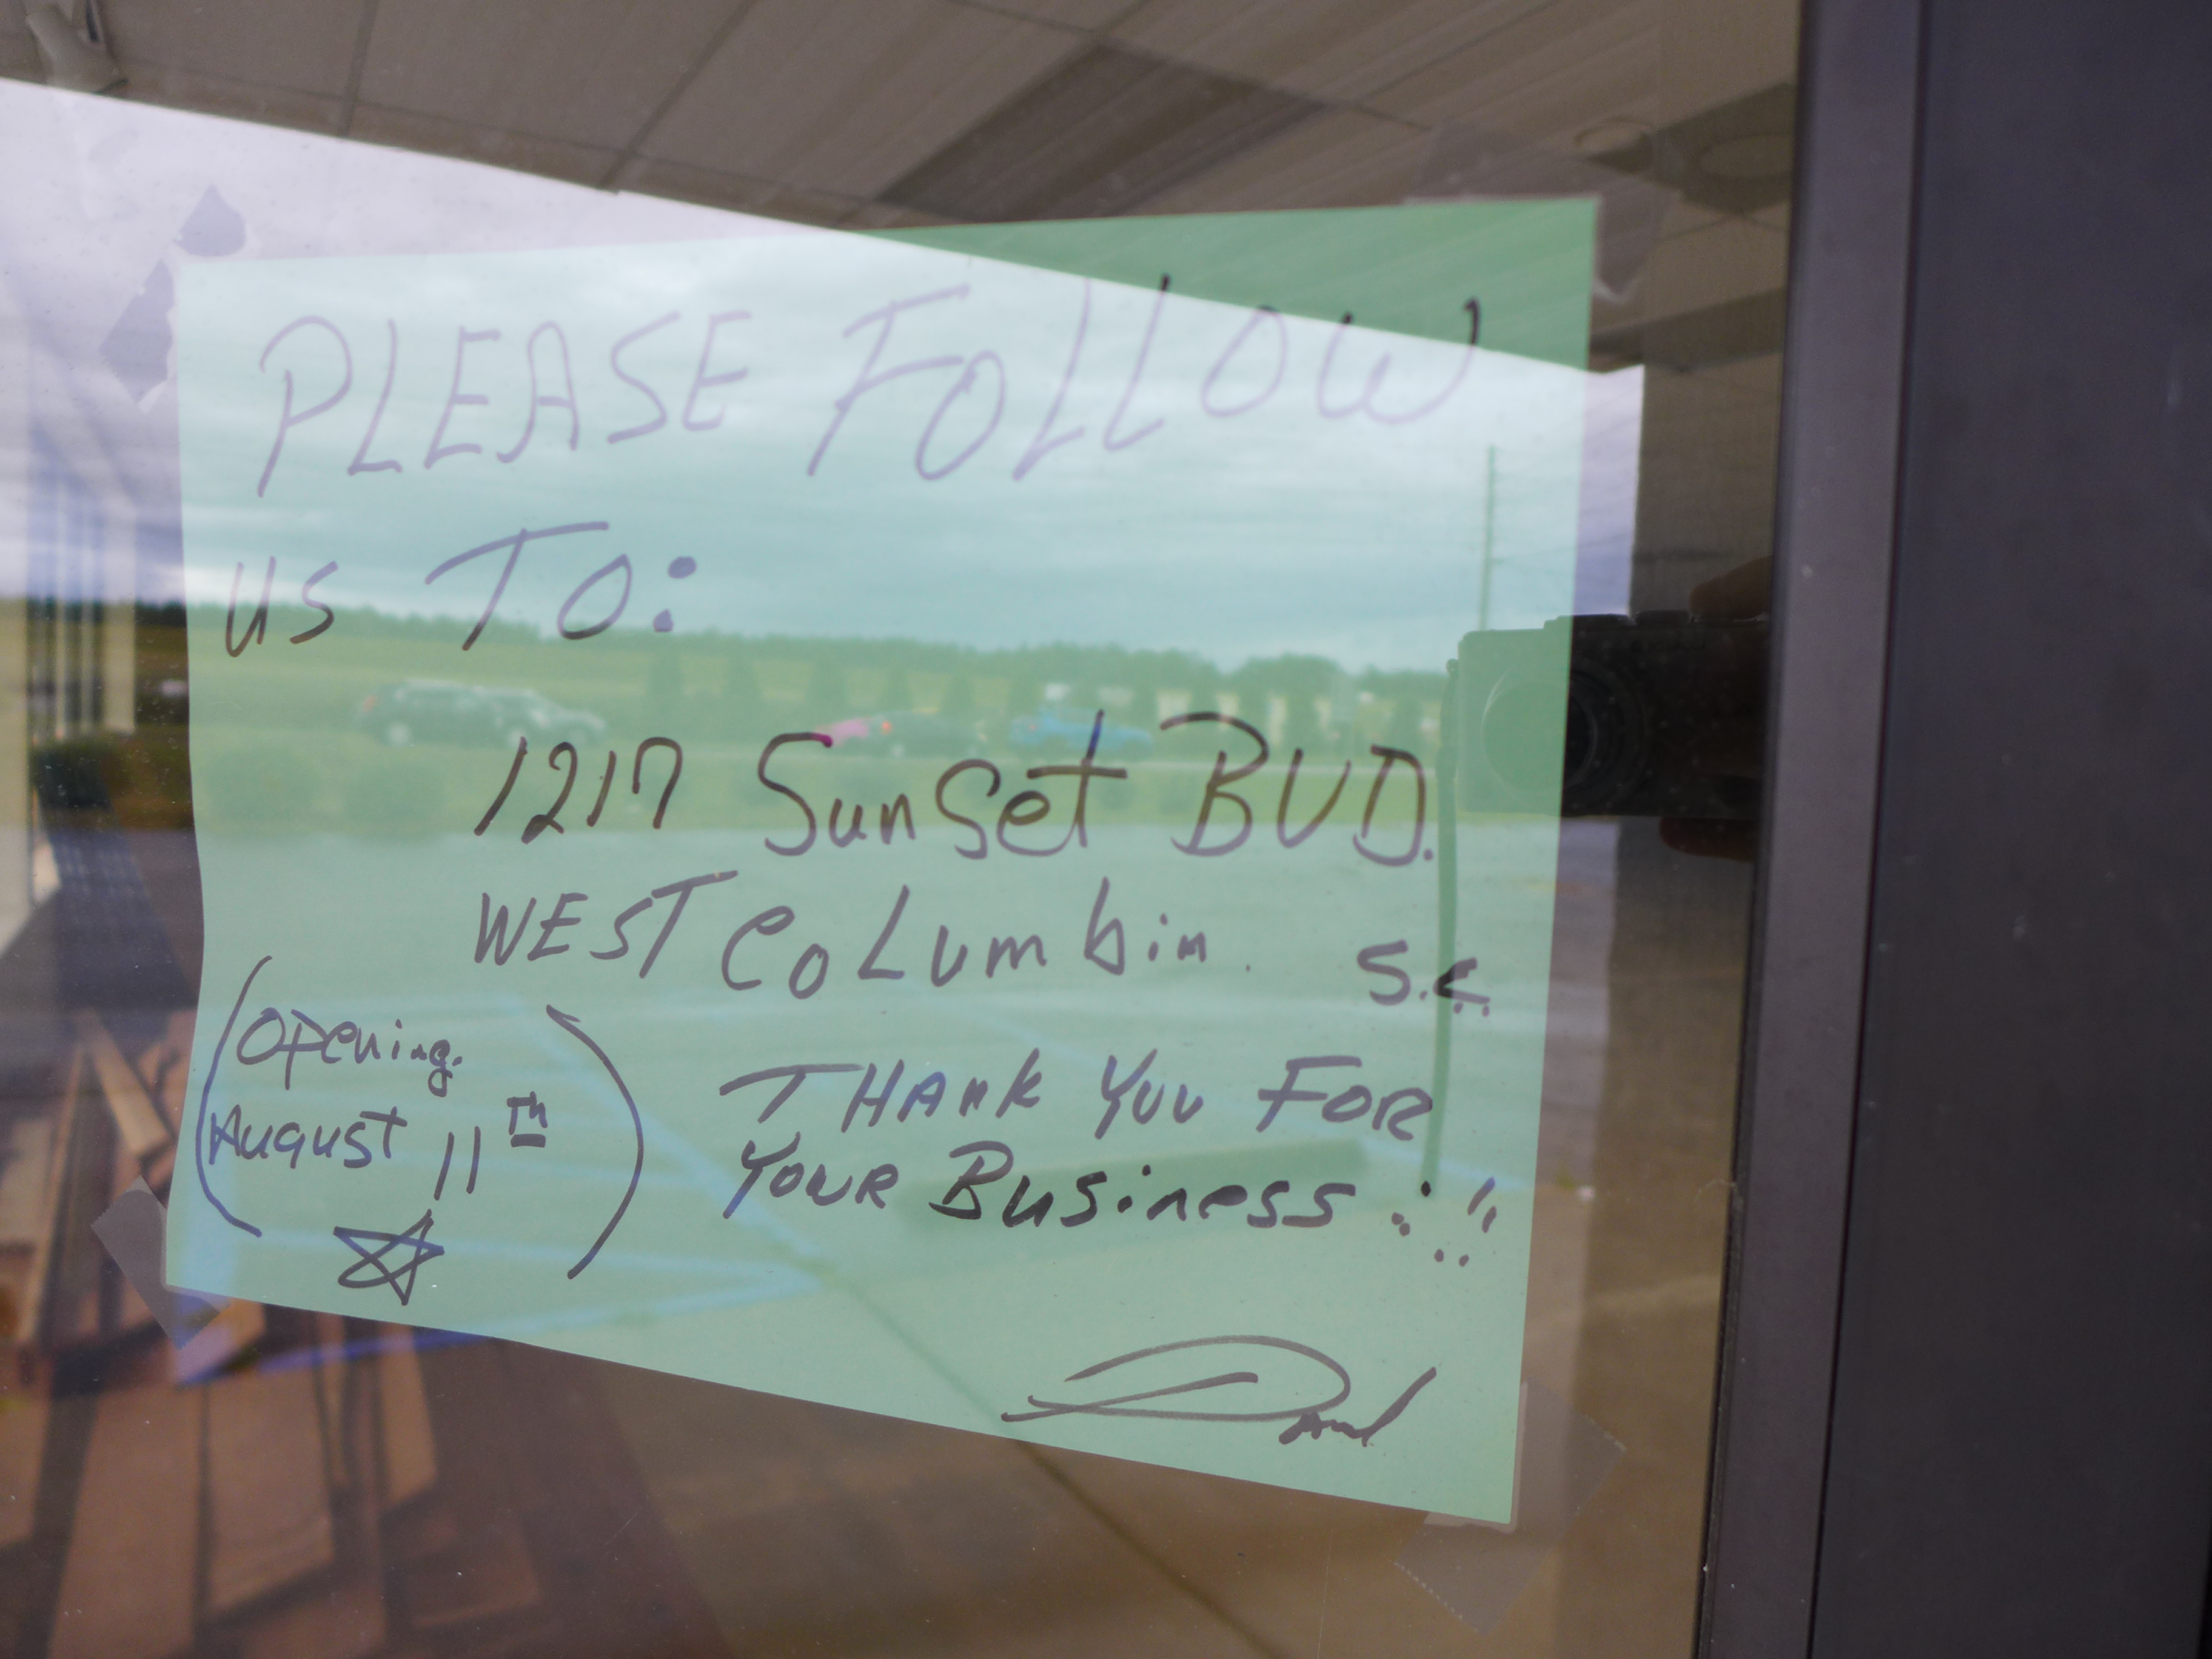 PLEASE FOLLOW
US TO:
1217 Sunset BLVD.
WEST COLUMbia. S.C.
(Opening.
August 11TH)
THANK YOU FOR
YOUR Business :!!